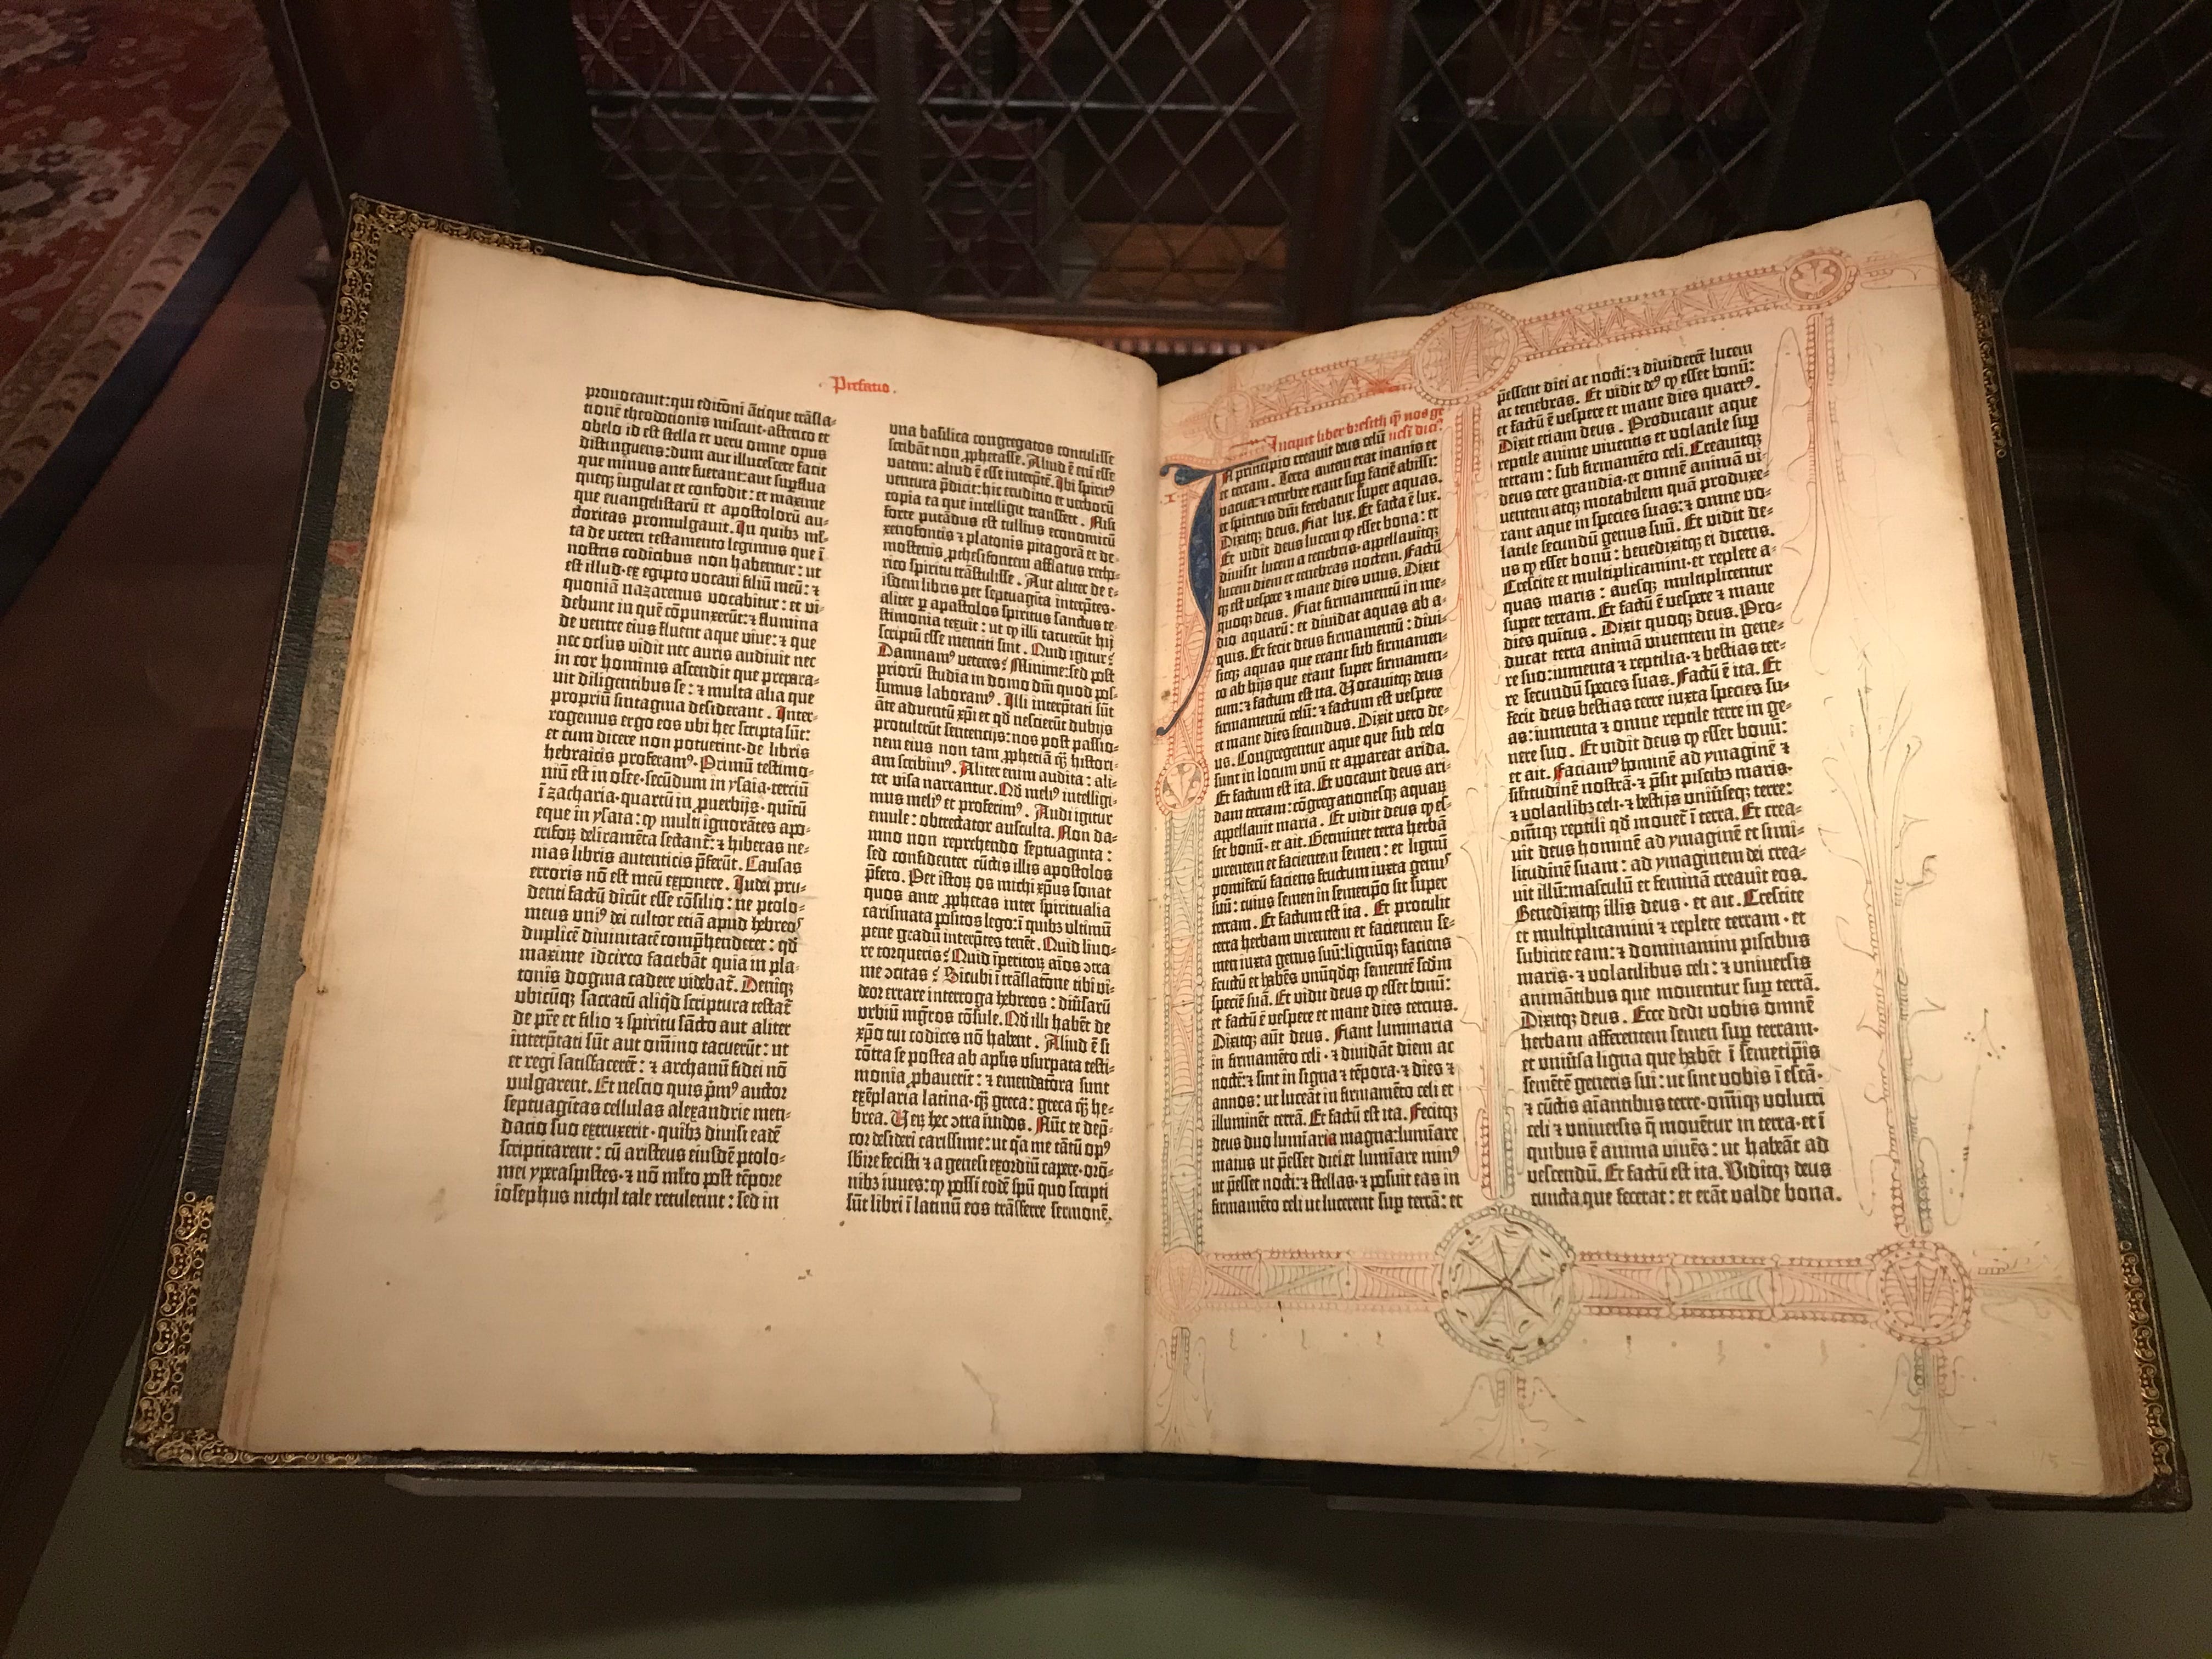 Prefatio.
prouocauit:qui editōni ātique trāsla-
tionē theodotionis miscuit·asterico et
obelo id est stella et veru omne opus
distinguens:dum aut illucescere facit
que minus ante fuerant:aut suꝑflua
queqꝫ iugulat et confodit: et maxime
que euangelistarū et apostolorū au-
ctoritas promulgauit. In quibꝫ ml-
ta de veteri testamento legimus que ī
nostris codicibus non habentur: ut
est illud·ex egipto vocaui filiū meū: ⁊
quoniā nazarenus vocabitur: et vi-
debunt in quē cōpunxerūt: ⁊ flumina
de ventre eius fluent aque viue: ⁊ que
nec oclus vidit nec auris audiuit nec
in cor hominis ascendit que prepara-
uit diligentibus se: ⁊ multa alia que
propriū sintagma desiderant. Inter-
rogemus ergo eos vbi hec scripta sūt:
et cum dicere non potuerint·de libris
hebraicis proferamꝰ. Primū testimo-
niū est in osee·secūdum in ysaia·terciū
ī zacharia·quartū in ꝓuerbijs·quītū
eque in ysaia: ꝙ multi ignorātes apo-
crifoꝝ deliramēta sectant̄: ⁊ hiberas ne-
nias libris autenticis p̄ferūt. Causas
erroris nō est meū exponere. Iudei pru-
denti factū dicūt esse cōsilio: ne ptolo-
meus vniꝰ dei cultor etiā apud hebreoꝰ
duplicē diuinitatē comp̄henderet: qd̄
maxime idcirco faciebāt quia in pla-
tonis dogma cadere videbat̄. Deniqꝫ
vbicūqꝫ sacratū aliqͥd scriptura testat̄
de pr̄e et filio ⁊ spiritu sācto aut aliter
interp̄tati sūt aut om̄ino tacuerūt: ut
et regi satissacerēt: ⁊ archanū fidei nō
vulgarent. Et nescio quis p̄mꝰ auctor
septuagītas cellulas alexandrie men-
dacio suo extruxerit·quibꝫ diuisi eadē
scriptitarent: cū aristeus eiusdē ptolo-
mei yperaspistes·⁊ nō ml̄to post tēpore
iosephus nichil tale retulerint: sed in
vna basilica congregatos contulisse
scribāt non ꝓphetasse. Aliud ē eni esse
vatem: aliud ē esse interp̄tē. Ibi spiritꝰ
ventura p̄dicit: hic eruditio et verborū
copia ea que intelligit transfert. Nisi
forte putādus est tullius economicū
xenofontis ⁊ platonis pitagorā et de-
mostenis ꝓthesifontem afflatus retho-
rico spiritu trāstulisse. Aut aliter de e-
isdem libris per septuagīta interp̄tes·
aliter ꝑ apostolos spiritus sanctus te-
stimonia texuit: ut ꝙ illi tacuerūt hij
scriptū esse mentiti sint. Quid igitur?
Damnamꝰ veteres? Minime: sed post
priorū studia in domo dn̄i quod pos-
sumus laboramꝰ. Illi interp̄tati sūt
āte aduentū xp̄i et qd̄ nescierūt dubijs
protulerūt sentencijs: nos post passio-
nem eius non tam ꝓphetiā qꝫ histori-
am scribimꝰ. Aliter enim audita: ali-
ter visa narrantur. Qd̄ meliꝰ intelligi-
mus meliꝰ et proferimꝰ. Audi igitur
emule: obtrectator ausculta. Non da-
mno non reprehendo septuaginta:
sed confidenter cūctis illis apostolos
p̄fero. Per istoꝝ os michi xp̄us sonat
quos ante ꝓphetas inter spiritualia
carismata positos lego: ī quibꝫ vltimū
pene gradū interp̄tes tenēt. Quid liuo-
re torqueris? Quid īperitoꝝ aīos ꝯtra
me ꝯcitas? Sicubi ī trāslatōne tibi vi-
deor errare interroga hebreos: diūsarū
vrbiū mḡros cōsule. Qd̄ illi habēt de
xp̄o tui codices nō habent. Aliud ē si
cōtra se postea ab aplis vsurpata testi-
monia ꝓbauerīt: ⁊ emendatiora sunt
exēplaria latina·qꝫ greca: greca qꝫ he-
brea. Veꝝ hec ꝯtra īuidos. Nūc te dep̄-
cor desideri carissime: ut qͥa me tātū opꝰ
sbire fecisti ⁊ a genesi exordiū capere·orō-
nibꝫ iuues: ꝙ possi eodē spū quo scripti
sūt libri ī latinū eos trāsferre sermonē.
Incipit liber bresith qͥꝫ nos ge
nesi dicīꝰ.
In principio creauit deus celū et
et terram. Terra autem erat inanis et
vacua: ⁊ tenebre erant suꝑ faciē abissi:
et spiritus dn̄i ferebatur super aquas.
Dixitqꝫ deus. Fiat lux. Et facta ē lux.
Et vidit deus lucem ꝙ esset bona: et
diuisit lucem a tenebris·appellauitqꝫ
lucem diem et tenebras noctem. Factū
qꝫ est vespere ⁊ mane dies vnus. Dixit
quoqꝫ deus. Fiat firmamentū in me-
dio aquarū: et diuidat aquas ab a-
quis. Et fecit deus firmamentū: diui-
sitqꝫ aquas que erant sub firmamen-
to ab hijs que erant super firmamen-
tum: ⁊ factum est ita. Vocauitqꝫ deus
firmamentū celū: ⁊ factum est vespere
et mane dies secundus. Dixit vero de-
us. Congregentur aque que sub celo
sunt in locum vnū et appareat arida.
Et factum est ita. Et vocauit deus ari-
dam terram: cōgregationesqꝫ aquaꝝ
appellauit maria. Et vidit deus ꝙ es-
set bonū·et ait. Germinet terra herbā
virentem et facientem semen: et lignū
pomiferū faciens fructum iuxta genꝰ
suū: cuius semen in semetip̄o sit super
terram. Et factum est ita. Et protulit
terra herbam virentem et facientem se-
men iuxta genus suū: lignūqꝫ faciens
fructū et habēs vnūqdqꝫ sementē scdm
speciē suā. Et vidit deus ꝙ esset bonū:
et factū ē vespere et mane dies tercius.
Dixitqꝫ aūt deus. Fiant luminaria
in firmamēto celi·⁊ diuidāt diem ac
noctē: ⁊ sint in signa ⁊ tēpora·⁊ dies ⁊
annos: ut luceāt in firmamēto celi et
illuminēt terrā. Et factū est ita. Fecitqꝫ
deus duo luminaria magna: lumiare
maius ut p̄esset diei et lumiare minꝰ
ut p̄esset nocti: ⁊ stellas·⁊ posuit eas in
firmamēto celi ut lucerent suꝑ terrā: et
p̄essent diei ac nocti: ⁊ diuiderēt lucem
ac tenebras. Et vidit deꝰ ꝙ esset bonū:
et factū ē vespere et mane dies quartꝰ.
Dixit etiam deus. Producant aque
reptile anime viuentis et volatile suꝑ
terram: sub firmamēto celi. Creauitqꝫ
deus cete grandia·et omnē animā vi-
uentem atqꝫ motabilem quā produxe-
rant aque in species suas: ⁊ omne vo-
latile secundū genus suū. Et vidit de-
us ꝙ esset bonū: benedixitqꝫ ei dicens.
Crescite et multiplicamini·et replete a-
quas maris: auesqꝫ multiplicentur
super terram. Et factū ē vespere ⁊ mane
dies quītus. Dixit quoqꝫ deus. Pro-
ducat terra animā viuentem in gene-
re suo: iumenta ⁊ reptilia·⁊ bestias ter-
re secundū species suas. Factū ē ita. Et
fecit deus bestias terre iuxta species su-
as: iumenta ⁊ omne reptile terre in ge-
nere suo. Et vidit deus ꝙ esset bonū:
et ait. Faciamꝰ hominē ad ymaginē ⁊
silitudinē nostrā·⁊ p̄sit piscibꝫ maris·
⁊ volatilibꝫ celi·⁊ bestijs vniūseqꝫ terre:
om̄iqꝫ reptili qd̄ mouet̄ ī terra. Et crea-
uit deus hominē ad ymaginē et simi-
litudinē suam: ad ymaginem dei crea-
uit illū: masculū et feminā creauit eos.
Benedixitqꝫ illis deus·et ait. Crescite
et multiplicamini ⁊ replete terram·et
subicite eam: ⁊ dominamini piscibus
maris·⁊ volatilibus celi: ⁊ vniuersis
animātibus que mouentur suꝑ terrā.
Dixitqꝫ deus. Ecce dedi vobis omnē
herbam afferentem semen suꝑ terram·
et vniūsa ligna que habēt ī semetip̄is
semētē generis sui: ut sint vobis ī escā·
⁊ cūctis aīantibus terre·om̄iqꝫ volucri
celi ⁊ vniuersis q̄ mouētur in terra·et ī
quibus ē anima viuēs: ut habeāt ad
vescendū. Et factū est ita. Viditqꝫ deus
cuncta que fecerat: et erāt valde bona.